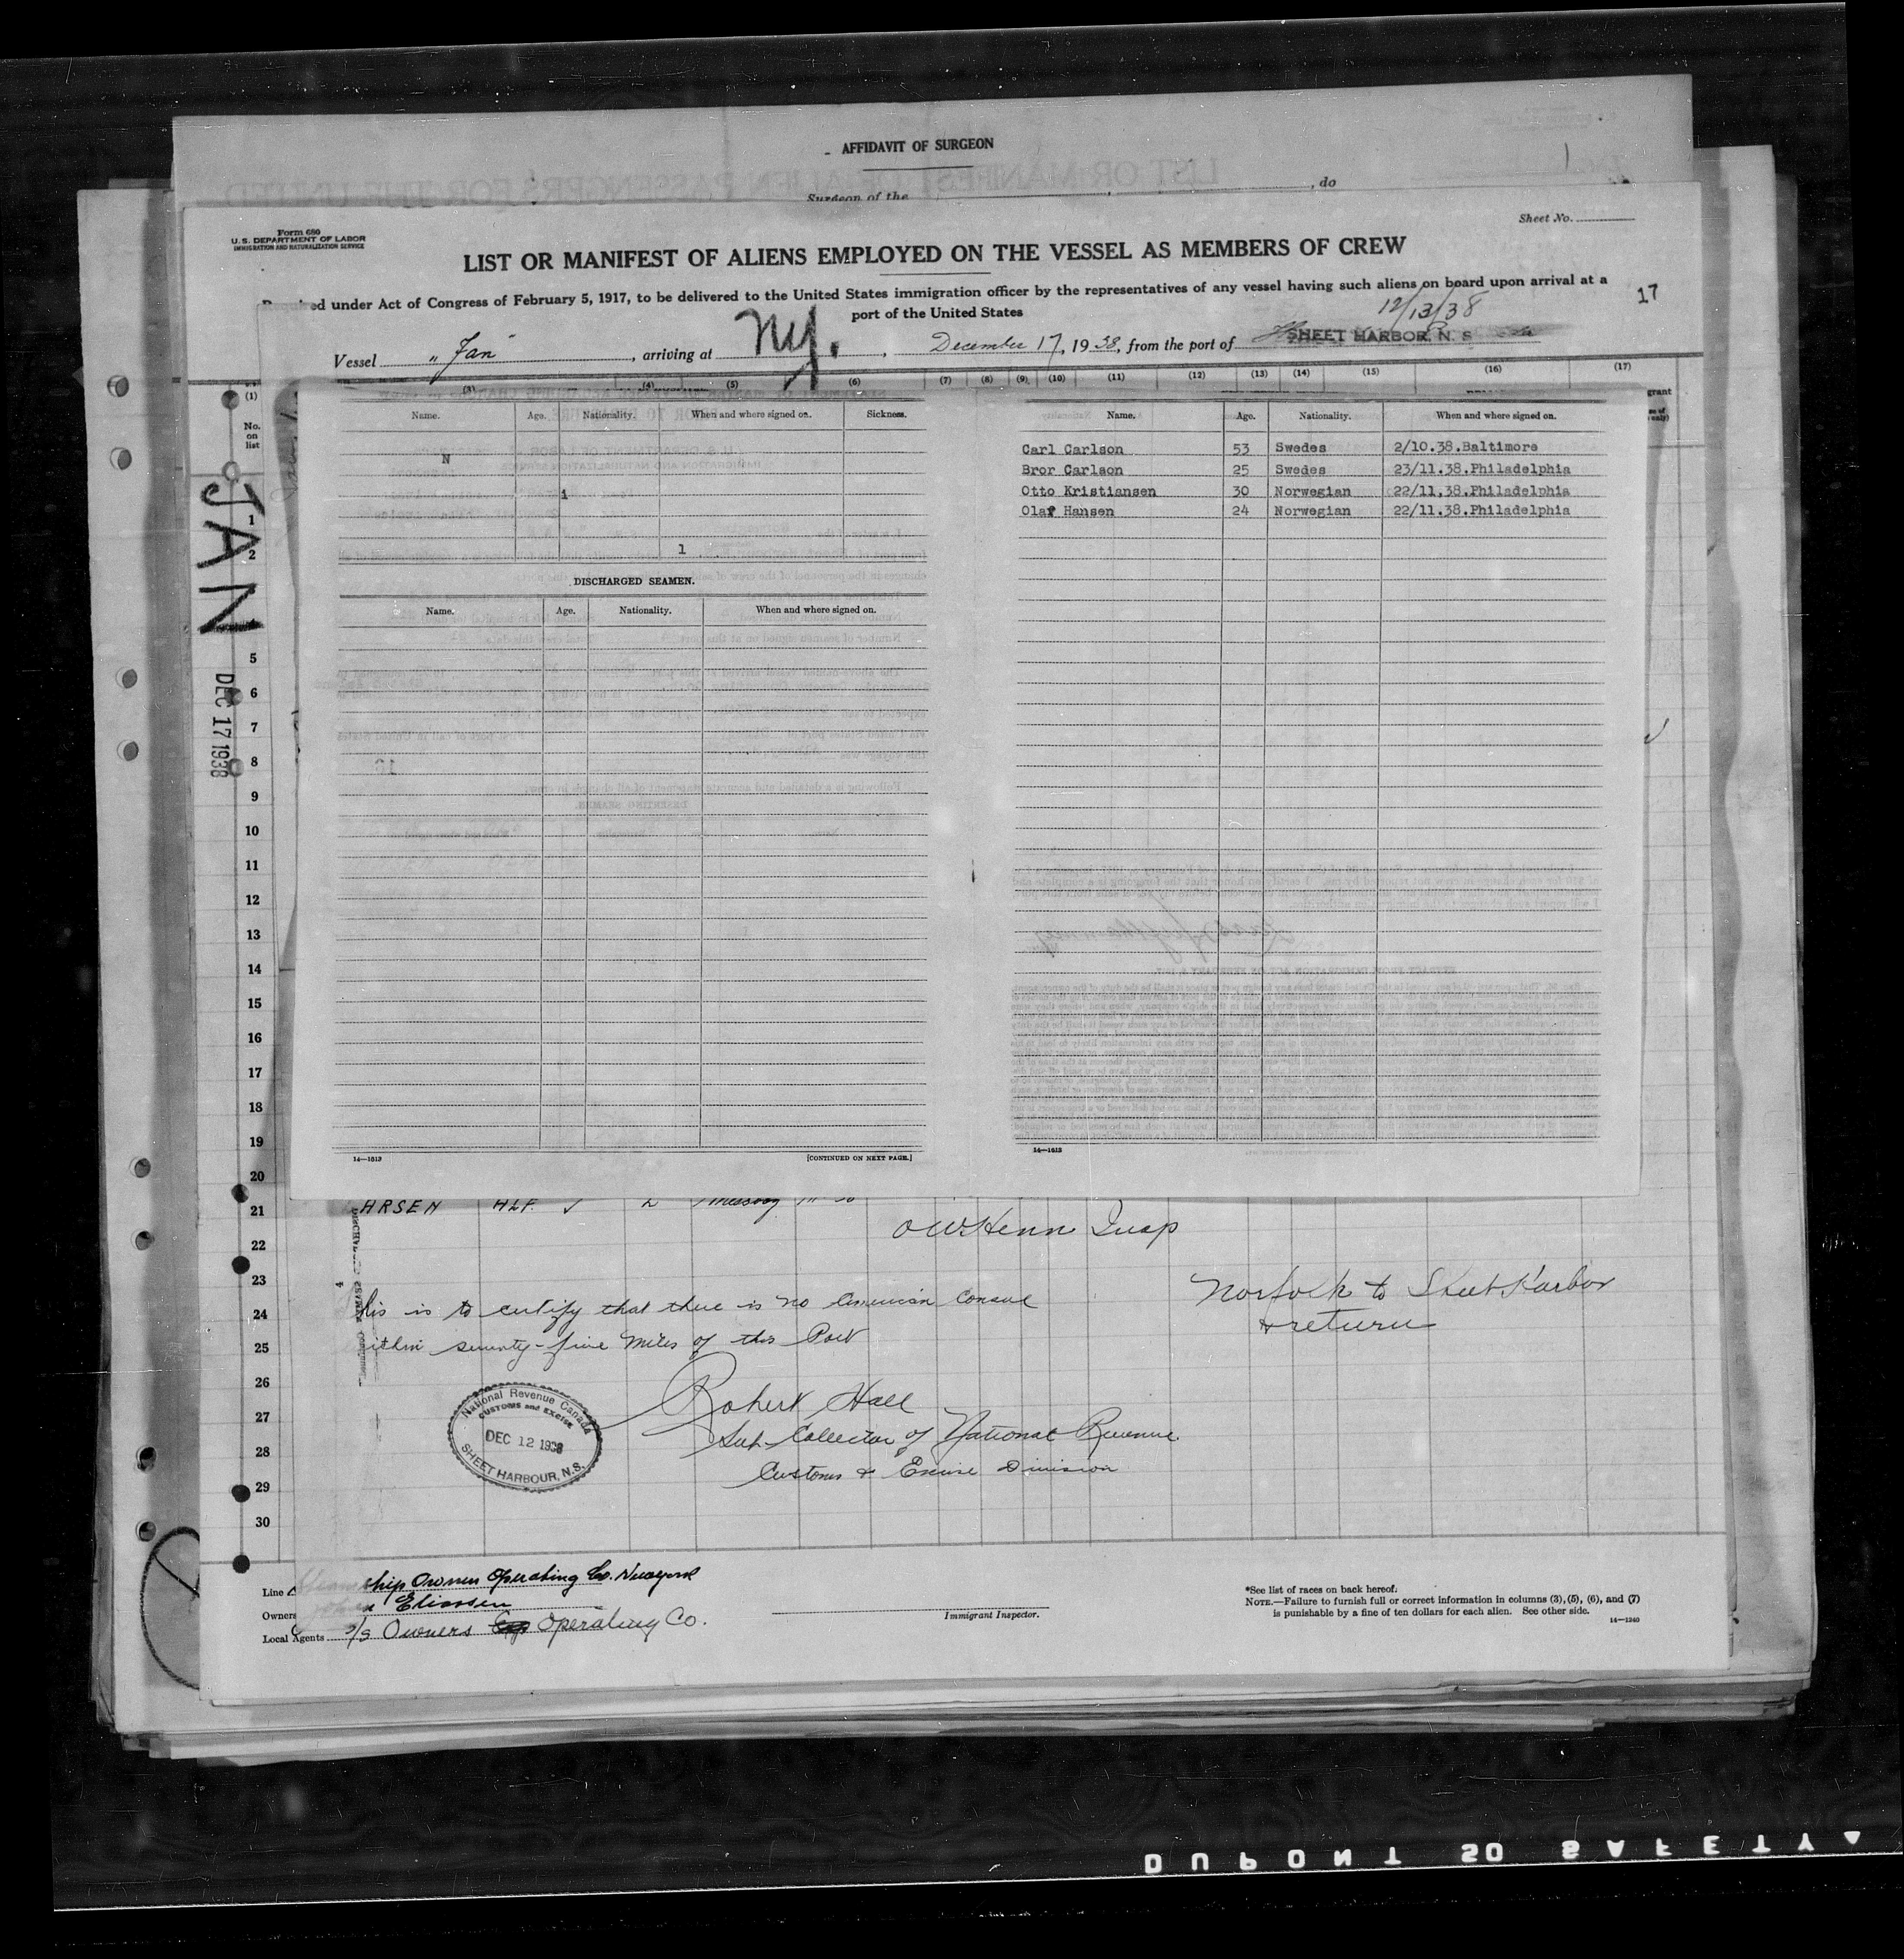 AFFIDAVIT OF SURGEON
Surgeon of the , do
Sheet No.
Form 680
U. S. DEPARTMENT OF LABOR
IMMIGRATION AND NATURALIZATION SERVICE
LIST OR MANIFEST OF ALIENS EMPLOYED ON THE VESSEL AS MEMBERS OF CREW
Required under Act of Congress of February 5, 1917, to be delivered to the United States immigration officer by the representatives of any vessel having such aliens on board upon arrival at a
port of the United States
12/13/38
17
Vessel "Jan" , arriving at NY. , December 17, 1938, from the port of SHEET HARBOR, N. S.
(1) (3) (4) (5) (6) (7) (8) (9) (10) (11) (12) (13) (14) (15) (16) (17)
No. on list
Name. Age. Nationality. When and where signed on. Sickness.
N
1
1
DISCHARGED SEAMEN.
Name. Age. Nationality. When and where signed on.
14—1613 [CONTINUED ON NEXT PAGE.]
Name. Age. Nationality. When and where signed on.
Carl Carlson 53 Swedes 2/10.38.Baltimore
Bror Carlson 25 Swedes 23/11.38.Philadelphia
Otto Kristiansen 30 Norwegian 22/11.38.Philadelphia
Olaf Hansen 24 Norwegian 22/11.38.Philadelphia
14—1613
JAN
DEC 17 1938
1
2
5
6
7
8
9
10
11
12
13
14
15
16
17
18
19
20
21 ARSEN ALF
22
23
24
25
26
27
28
29
30
OW Henn Insp
Norfolk to Sheet Harbor
& return
his is to certify that there is no American Consul
ithin seventy-five miles of this Port
Robert Hall
Sub-Collector of National Revenue
Customs & Excise Division
National Revenue Canada
CUSTOMS and EXCISE
DEC 12 1938
SHEET HARBOUR, N.S.
Line Steamship Owners Operating Co. Newyork
Owners Johan Eliassen
Local Agents S/S Owners Operating Co.
Immigrant Inspector.
*See list of races on back hereof.
NOTE.—Failure to furnish full or correct information in columns (3), (5), (6), and (7)
is punishable by a fine of ten dollars for each alien. See other side.
14—1240
DUPONT 50 SAFETY